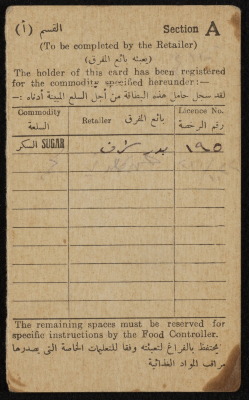 القسم (أ) Section A
(To be completed by the Retailer)
(يعبئه بائع المفرق)
The holder of this card has been registered
for the commodity specified hereunder:—
لقد سجل حامل هذه البطاقة من أجل السلع المبينة أدناه :—
Commodity السلعة
Retailer بائع المفرق
Licence No. رقم الرخصة
السكر SUGAR
١٩٥
The remaining spaces must be reserved for
specific instructions by the Food Controller.
يحتفظ بالفراغ لتعبئته وفقا للتعليمات الخاصة التي يصدرها
مراقب المواد الغذائية